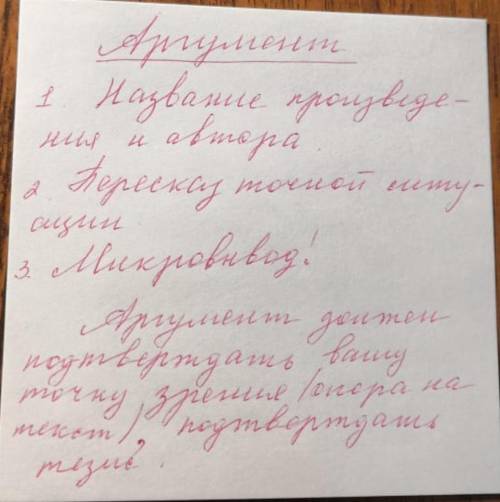 Аргумент
1 Название произведе-
ния и автора
2 Пересказ точной ситу-
ации
3. Микровывод!
Аргумент должен
подтверждать вашу
точку зрения (опора на
текст), подтверждать
тезис.